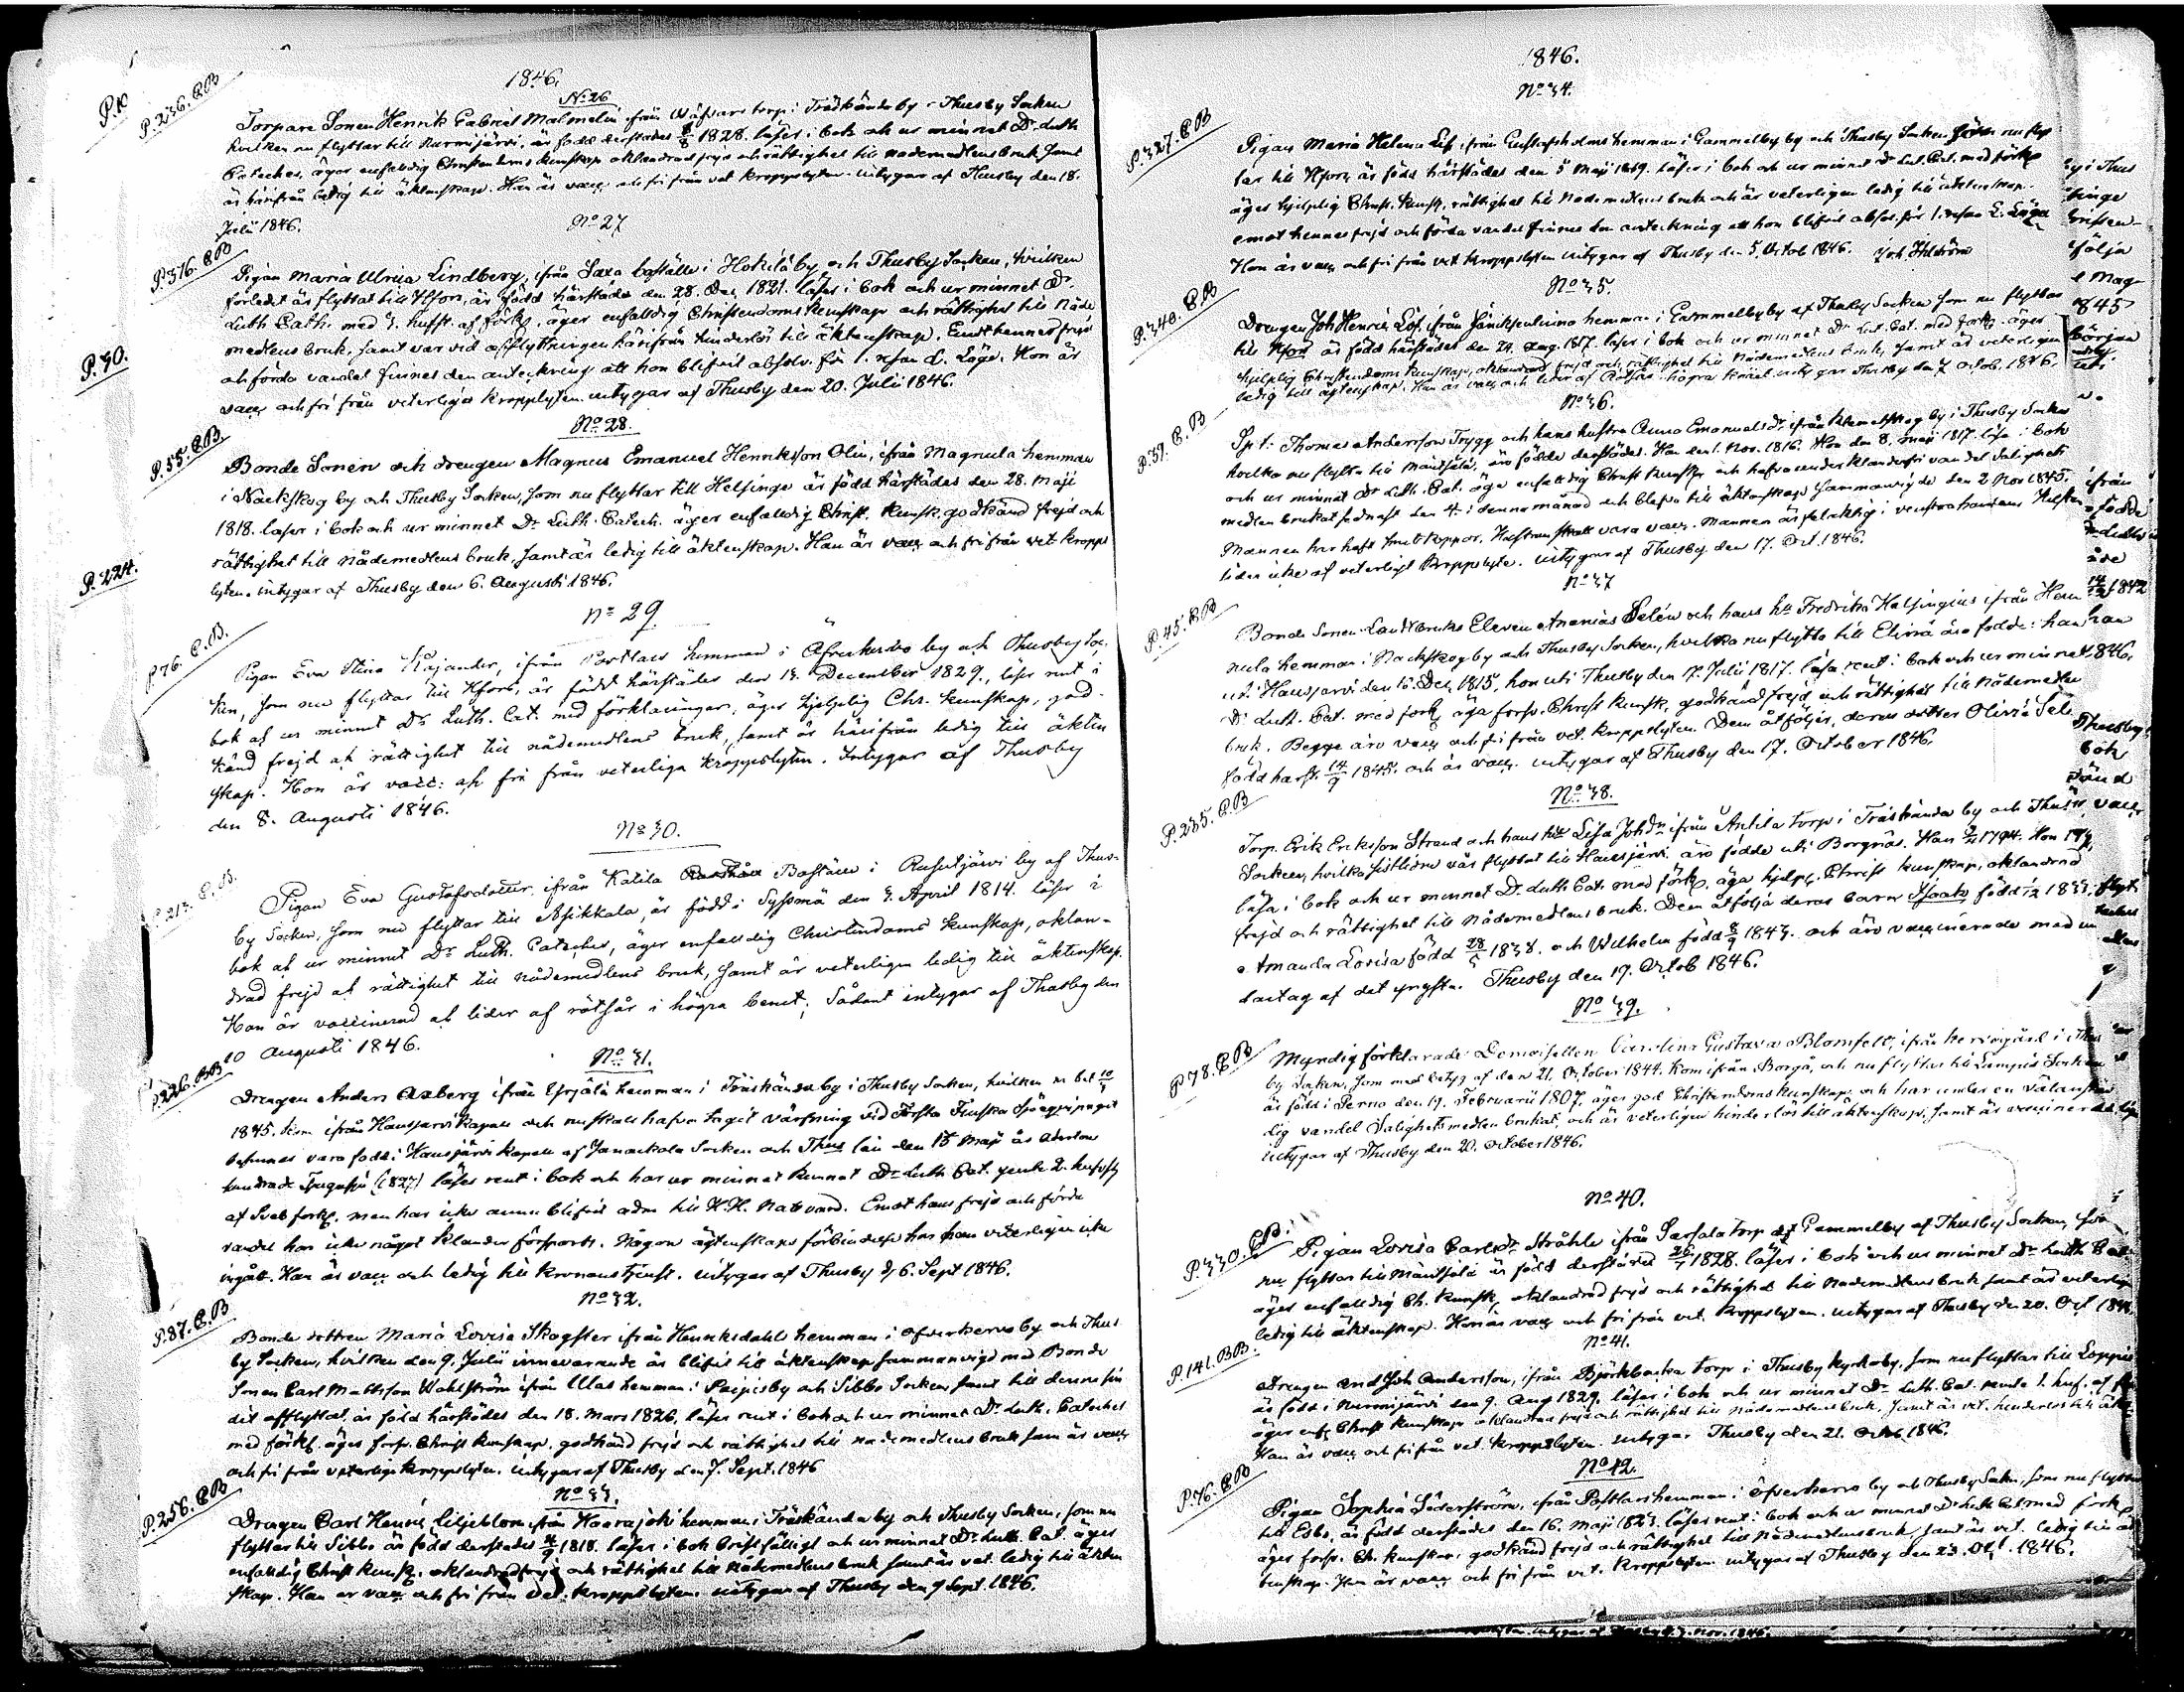 1846.
No 26
P. 236. C.B
Torpare Sonen Henrik Gabriel Malmelin ifrån Wäfvars torp i Träskända by o Thusby Socken
hvilken nu flyttar till Nurmijärvi, är född derstädes 1828. läser i bok och ur minnet Dr Luth
Cateches, äger enfalldig Christendoms kunskap oklandrad frejd och rättighet till nademedlens bruk samt
är härifrån ledig till äktenskap. Han är vacc och fri från vet kroppslyten intygar af Thusby den 18.
Julii 1846.
No 27
P. 376. C.B
Pigan Maria Ulrica Lindberg, ifrån Saxa boställe i Hokulä by och Thusby Socken, hvilken
förledet är flyttat till Hfors, är född härstädes den 28. Dec. 1821. läser i bok och ur minnet Dr.
Luth Cath. med 3. hufst. af förkl, äger enfalldig Christendoms kunskap och rättighet till Nåde
medlens bruk, samt var vid afflyttningen härifrån hinderlös till äktenskap. Emot hennes frejd
och förda vandel finnes den anteckning att hon blifvit absolv. för 1. resan L. Läge. Hon är
vacc och fri från veterliga kroppslyten intygar af Thusby den 20. Julii 1846.
No 28.
P. 55. C.B.
Bonde Sonen och drengen Magnus Emanuel Henriksson Olin, ifrån Magnula hemman
i Nackskog by och Thusby Socken, som nu flyttar till Helsinge är född härstädes den 28. Maji
1818. läser i bok och ur minnet Dr Luth. Catech. äger enfalldig Christ. Kunsk. godkänd frejd och
rättighet till nådemedlens bruk, samt är ledig till äktenskap. Han är vacc och fri från vet. kropps
lyten. intygar af Thusby den 6. Augusti 1846.
No 29
P 76. C.B.
Pigan Eva Stina Kajander, ifrån Postlars hemman i Öfverkervo by och Thusby Soc-
ken, som nu flyttar till Hfors, är född härstädes den 13. December 1829., läser rent i
bok och ur minnet Dr Luth. Cat. med förklaringar, äger hjelplig Chr. kunskap, god-
känd frejd och rättighet till nådemedlens bruk, samt är härifrån ledig till äkten
skap. Hon är vacc: och fri från veterliga kroppslyten. Intygar af Thusby
den 8. Augusti 1846.
No 30.
P. 213. C.B.
Pigan Eva Gustafsdotter ifrån Katila Boställe i Rusutjärvi by af Thus-
by Socken, som nu flyttar till Asikkala, är född i Syssmä den 3. April 1814. läser i
bok och ur minnet Dr Luth. Cateches, äger enfalldig Christendoms kunskap, oklan-
drad frejd och rättighet till nådemedlens bruk, samt är veterligen ledig till äktenskap.
Hon är vaccinerad och lider af rötsår i högra benet; Sådant intygar af Thusby den
10 Augusti 1846.
No 31.
P. 226. BB
Drengen Anders Axberg ifrån Yrjälä hemman i Träskända by i Thusby Socken, hvilken
1845. kom ifrån Hausjärvi Kapell och nu skall hafva tagit värfning vid Första Finska
vara född i Hausjärvi Kapell af Janackala Socken och Thus län den 15 Maji år Aderton
hundrade Tjugusju (1827) läser rent i bok och har ur minnet kunnat Dr Luth Cat. jemte 2. hufvst
af Sveb förkl. men har icke ännu blifvit adm till H.H. Nattvard. Emot hans frejd och förda
vandel har icke något klander försports. Någon ägtenskaps förbindelse har han veterligen icke
ingått. Han är vacc och ledig till kronans tjenst. intygar af Thusby d. 6. Sept 1846.
No 32.
P. 87. C.B
Bonde dottren Maria Lovisa Skogster ifrån Henriksdahls hemman i Öfverkervo by och Thus-
by Socken, hvilken den 9. Julii innevarande år blifvit till äktenskap sammanvigd med Bonde
Sonen Carl Mattsson Wahlström ifrån Ulas hemman i Paipisby och Sibbo Socken samt till denne sin
dit afflyttat, är född härstädes den 18. Mars 1826, läser rent i bok och ur minnet Dr Luth. Cateches
med förkl. äger forsv. Christ kunskap, godkänd frejd och rättighet till nademedlens bruk sam är vacc
och fri från veterliga kroppslyten. intygar af Thusby den 7. Sept. 1846
No 33.
P. 256. C.B
Drengen Carl Henric Liljeblom ifrån Haarajoki hemman i Träskända by och Thusby Socken, som nu
flyttar till Sibbo är född derstädes 1818. läser i bok bristfälligt och ur minnet Dr. Luth. Cat. äger
enfalldig Christ kunsk, oklandrad frejd och rättighet till Nådemedlens bruk samt är vet. ledig till äkten
skap. Han är vacc och fri från vet. kroppslyten. intygar af Thusby den 9 Sept. 1846.
P. 10
P. 30.
P. 224.
1846.
No 34.
P. 327. C.B
Pigan Maria Helena Löf, ifrån Gustafsholms hemman i Gammelby by och Thusby Socken som nu flyt
tar till Hfors är född härstädes den 5 Maji 1819. läser i bok och ur minnet Dr Lut. Cat. med förkl
äger hjelplig Christ. kunsk, rättighet till Nådemedlens bruk och är veterligen ledig till äktenskap.
emot hennes frejd och förda vandel finnes den anteckning att hon blifvit absol. för 1. resan L. Läge
Hon är vacc och fri från vet kroppslyten intygar af Thusby den 5. Octob 1846.
No 35.
P. 340. C.B
Drengen Joh Henric Löf, ifrån hemman i Gammelby by af Thusby Socken som nu flyttar
till Hfors är född härstädes den 24. Aug. 1817. läser i bok och ur minnet Dr Lut. Cat. med förkl. äger
hjelplig Christendoms kunskap, oklandrad frejd och rättighet till Nådemedlens bruk, samt är veterligen
ledig till ägtenskap. Han är vacc och lider af Rötsår i högra knäet. intygar Thusby den 7 Octob. 1846.
No 36.
P. 39. C.B
Thomas Andersson Trygg och hans hustru Anna Emanuelsdr ifrån Klemetskog by i Thusby Socken
hvilka nu flytta till Mäntsälä, äro födde derstädes. Han den 1. Nov. 1816. Hon den 8. Maji 1817. läsa i bok
och ur minnet Dr Luth. Cat. äga enfalldig Christ kunskp och hafva under klanderfri vandel Salighets
medlen brukat sednast den 4. i denna månad och blefvo till äktenskap sammanvigde den 2 Nov 1845.
Mannen har haft Smittkoppor. Hustrun skall vara vacc. Mannen är felaktig i venstra handen. Hustrun
lider icke af veterligt kroppslyte. intygar af Thusby den 17. Oct. 1846.
No 37
P. 45. C.B
Bonde Sonen Landtbruks Eleven Ananias Selén och hans hu Fredrika Helsingius ifrån
nula hemman i Nackskog by och Thusby Socken, hvilka nu flytta till Elimä äro födde: han
uti Hausjärvi den 15. Dec. 1815, hon uti Thusby den 17. Julii 1817. läsa rent i bok och ur minnet
Dr Luth. Cat. med förkl äga forsv. Christ kunsk, godkänd frejd och rättighet till Nådemedlen
bruk. Begge äro vacc och fri från vet. kroppslyten. Dem åtföljer, deras dotter Olivia Sel
född härst. 14/9 1845. och är vacc. intygar af Thusby den 17. October 1846.
No 38.
P. 235. C.B
Torp. Erik Eriksson Strand och hans hu Lisa Johdr ifrån Antila torp i Träskända by och Thusby
Socken, hvilka sistliden vår flyttat till Hausjärvi, äro födde uti Borgnäs. Han 1794. Hon
läsa i bok och ur minnet Dr. Luth Cat. med förkl, äga hjelpl. Christ kunskap, oklandrad
frejd och rättighet till Nådemedlens bruk. Dem åtfölja deras barn Isaak född
Amanda Lovisa född 1838. och Wilhelm född 1843. och äro vaccinerade med un
dantag af det yngsta. Thusby den 17. Octob 1846.
No 39.
P 78. C.B
Myndig förklarade Demoisellen Carolina Gustava Blomfelt, ifrån gård i
by Socken, som med betyg af den 21. October 1844. kom ifrån Borgå, och nu flyttar till Lampis Socken
är född i Perno den 19. Februarii 1807. äger god Christendoms kunskap, och har under en välanstän
dig vandel Salighetsmedlen brukat, och är veterligen hinderlös till äktenskap, samt är vaccinerad
intygar af Thusby den 20. October 1846.
No 40.
P. 330. C.B.
Pigan Lovisa Carlsdr Stråhle ifrån Sarsala torp af Gammelby af Thusby Socken,
nu flyttar till Mäntsälä är född derstädes 1828. läser i bok och ur minnet Dr Luth Cat
äger enfalldig Ch. kunsk, oklandrad frejd och rättighet till Nådemedlens bruk samt är veterligen
ledig till äktenskap. Hon är vacc och fri från vet. kroppslyten. intygar af Thusby den 20. Oct 1846.
No 41.
P. 141. BB.
Drengen And Joh Andersson, ifrån Björkbacka torp i Thusby kyrkoby, som nu flyttar till Loppis
är född i Nurmijärvi den 9. Aug 1829. läser i bok och ur minnet Dr. Luth. Cat. jemte 1. huf. af
äger enf. Christ kunskap oklandrad frejd och rättighet till Nådemedlens bruk, samt är vet. hinderlös till
Han är vacc och fri från vet. kroppslyten. intygar Thusby den 21. Octob. 1846.
No 42.
P. 76. C.B
Pigan Sophia Söderström, ifrån Postlars hemman i Öfverkervo by och Thusby Sock, som nu flyttar
till Esbo, är född derstädes den 16. Maji 1823. läser rent i bok och ur minnet Dr Luth Cat med förkl
äger forsv. Ch. kunskap, godkänd frejd och rättighet till Nådemedlens bruk, samt är vet. ledig till
tenskap. Hon är vacc och fri från vet. kroppslyten intygar af Thusby den 23. Oct. 1846.
intygar af Thusby d. 3. Nov. 1846.